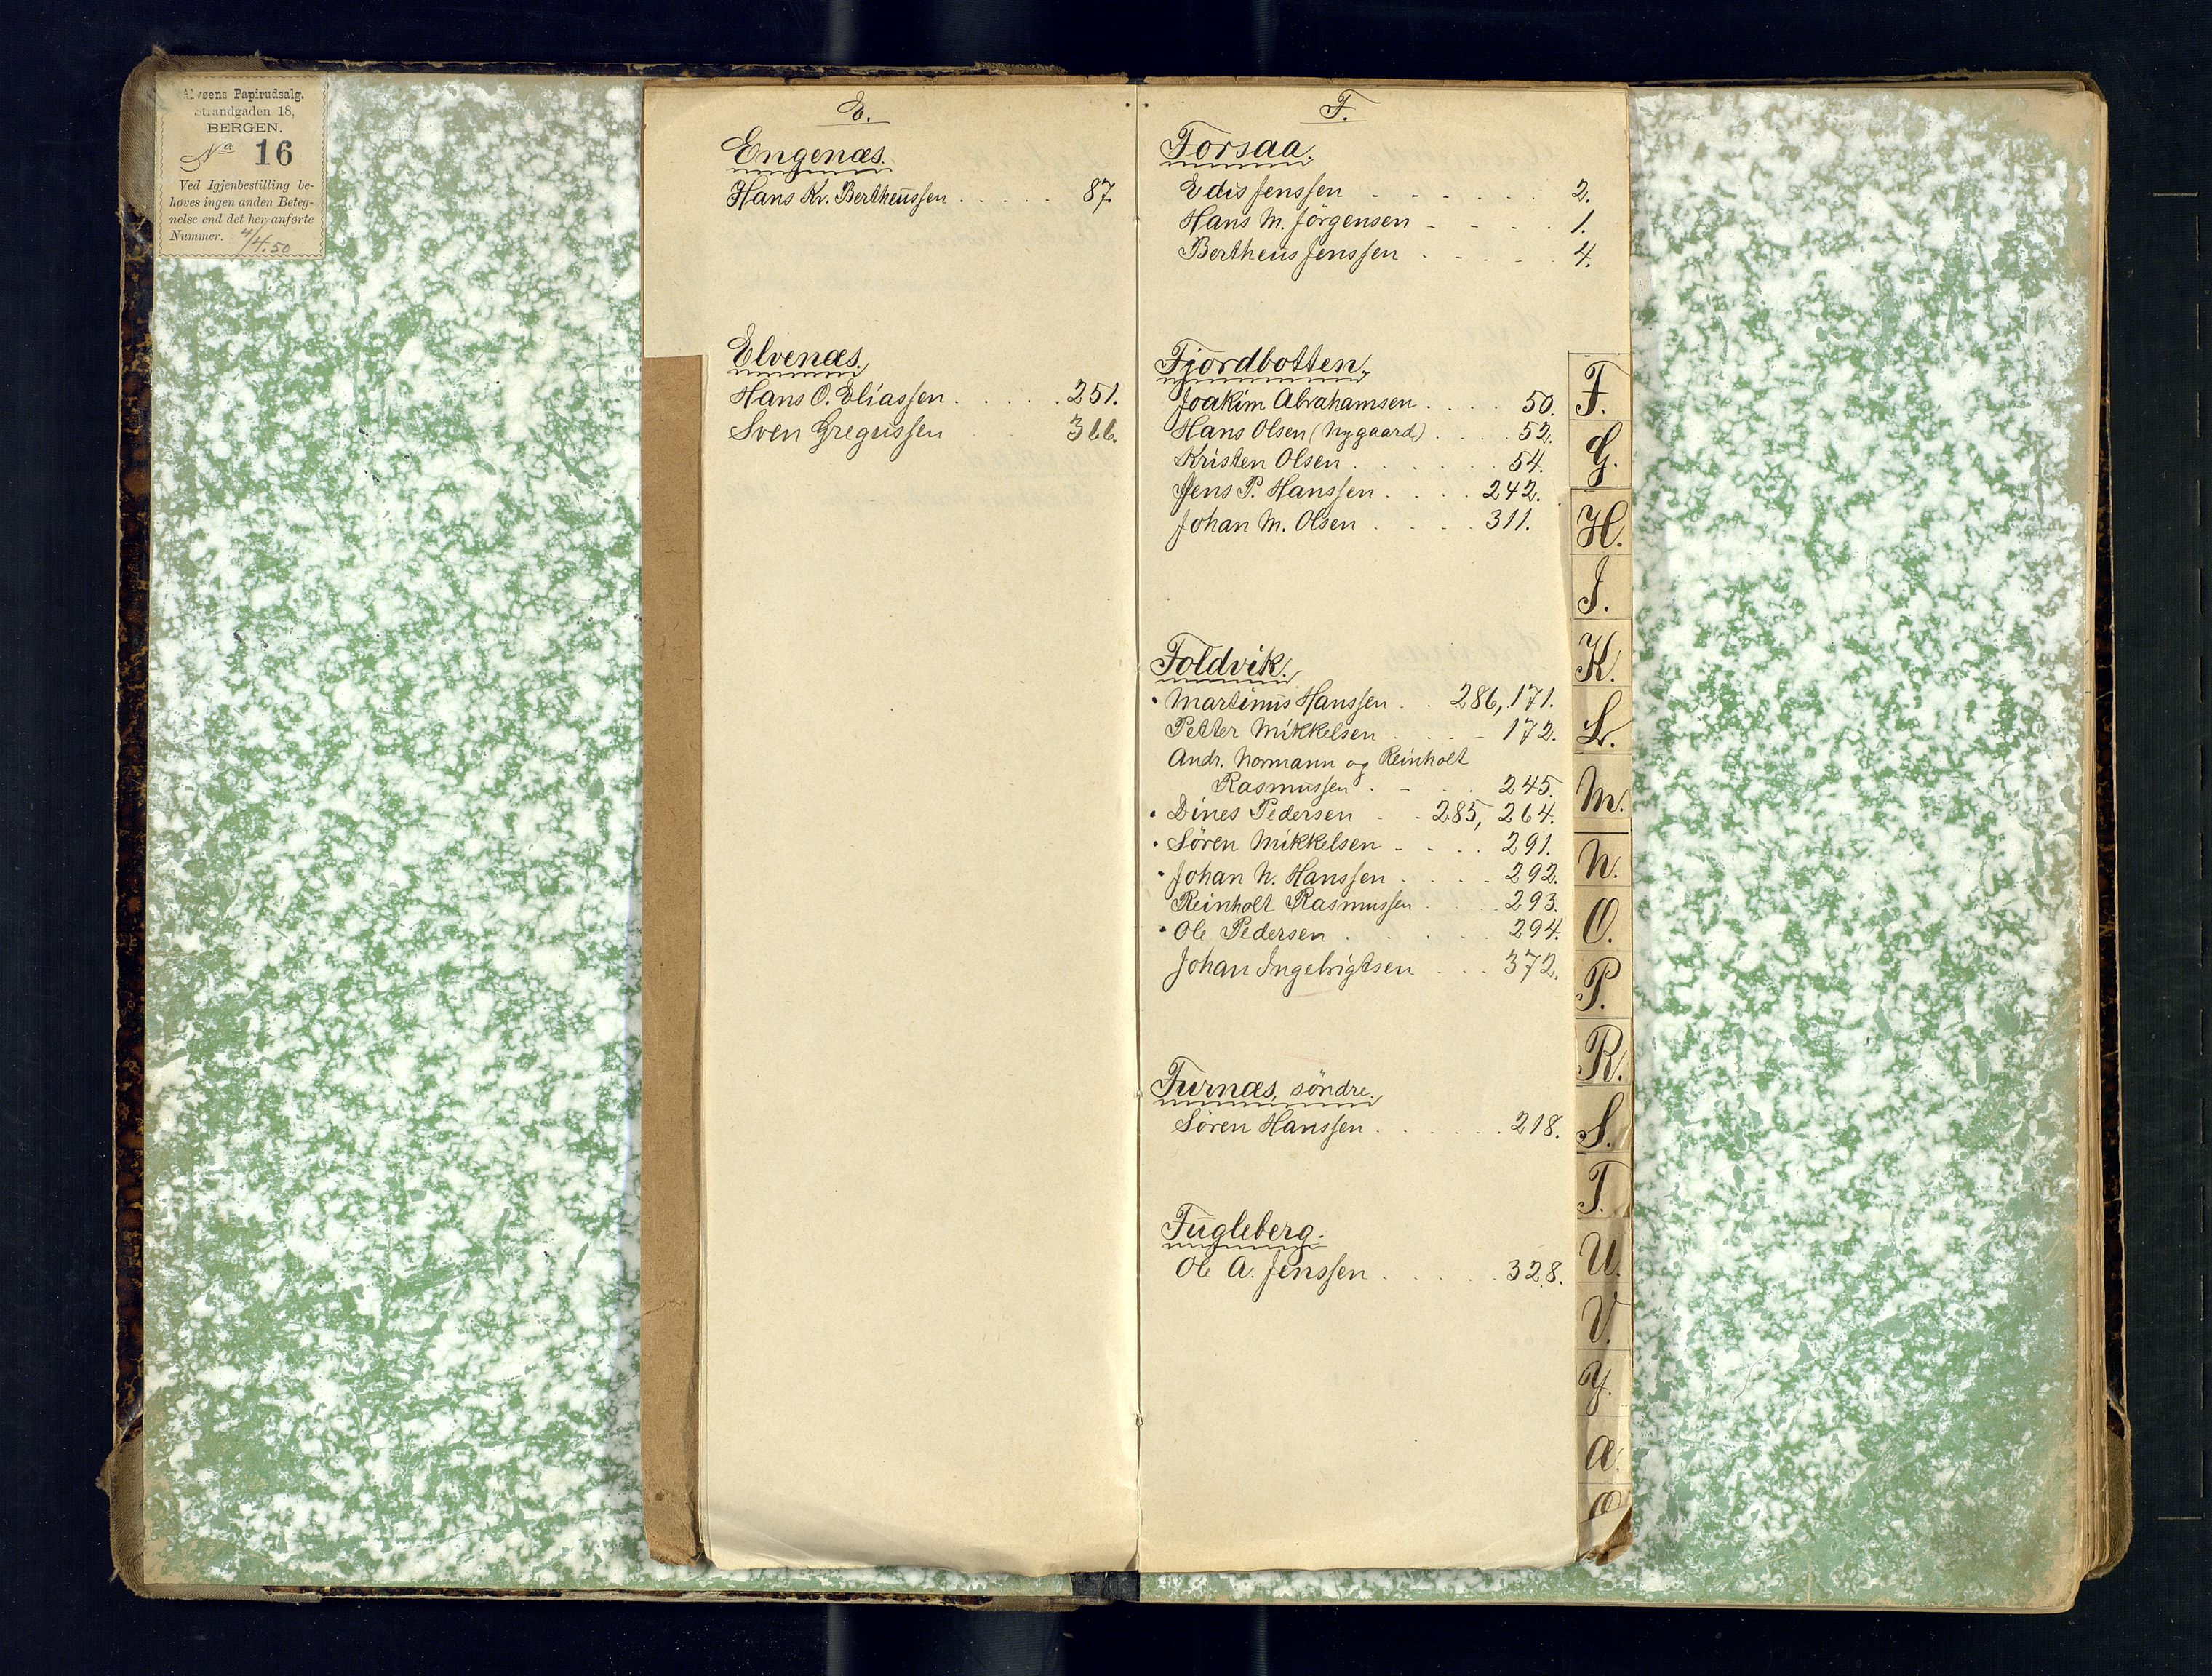 Alvøens Papirudsalg.
Strandgaden 18,
BERGEN.
No 16
Ved Igjenbestilling be-
høves ingen anden Beteg-
nelse end det her anførte
Nummer.
4/4.50
E.
Engenæs.
Hans Kr. Bertheussen . . . . . 87.
Elvenæs.
Hans O. Eliassen . . . . . 251.
Sven Gregussen . . . 366.
F.
Forsaa.
Edis Jenssen - - - - . . 2.
Hans M. Jörgensen - - - . 1.
Bertheus Jenssen . - - - . 4.
Fjordbotten.
Joakim Abrahamsen . . . . 50.
Hans Olsen (Nygaard) . . . . 52.
Kristen Olsen . . . . . . 54.
Jens P. Hanssen . . . . 242.
Johan M. Olsen . . . . 311.
Foldvik.
· Martinus Hanssen . . 286, 171.
Petter Mikkelsen . . . - 172.
Andr. Normann og Reinholt
Rasmussen . - . . 245.
· Dines Pedersen - . 285, 264.
· Sören Mikkelsen - . . . 291.
· Johan N. Hanssen . . . . 292.
Reinholt Rasmussen . . . 293.
· Ole Pedersen . . . . . 294.
Johan Ingebrigtsen . . . 372.
Furnæs, söndre.
Sören Hanssen . . . . . . 218.
Fugleberg.
Ole A. Jenssen . . . . . 328.
F.
G.
H.
I.
K.
L.
M.
N.
O.
P.
R.
S.
T.
U.
V.
Y.
Æ
Ø